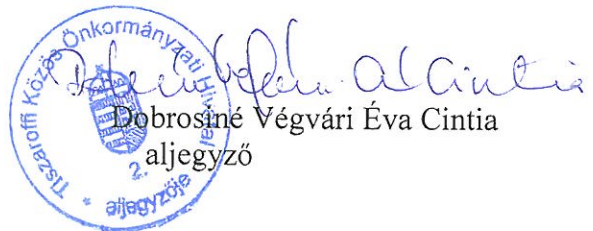 Tiszaroffi Közös Önkormányzati Hivatal
aljegyzője
2.
Dobrosiné Végvári Éva Cintia
aljegyző